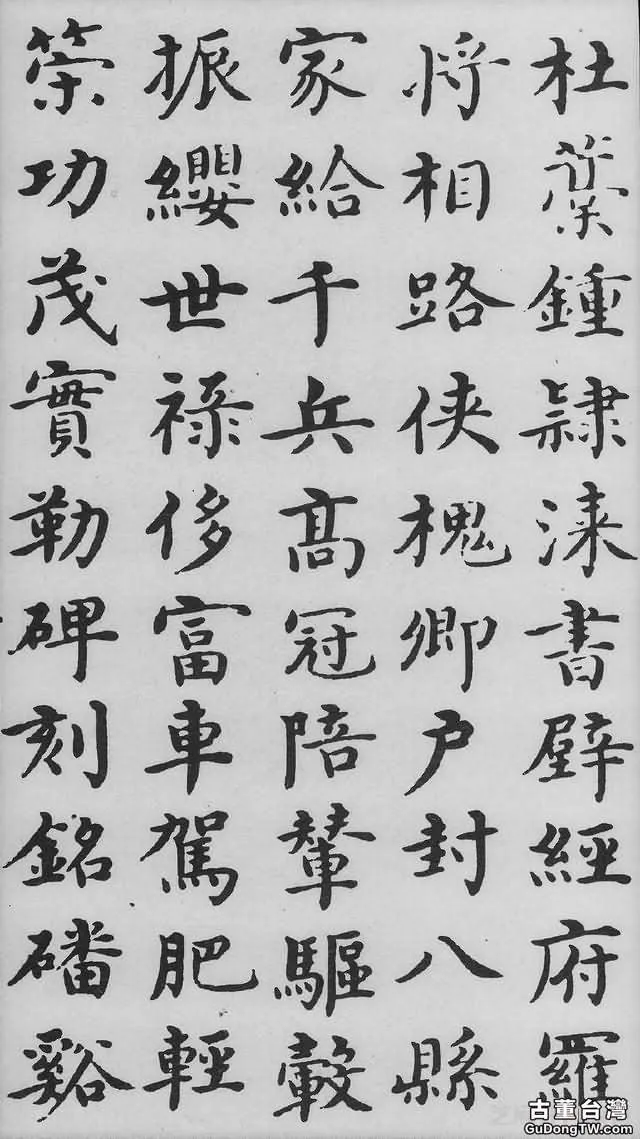 杜稾鍾隷漆書壁經府羅
將相路俠槐卿户封八縣
家給千兵高冠陪輦驅轂
振纓世祿侈富車駕肥輕
策功茂實勒碑刻銘磻谿
古董台灣
GuDongTW.com